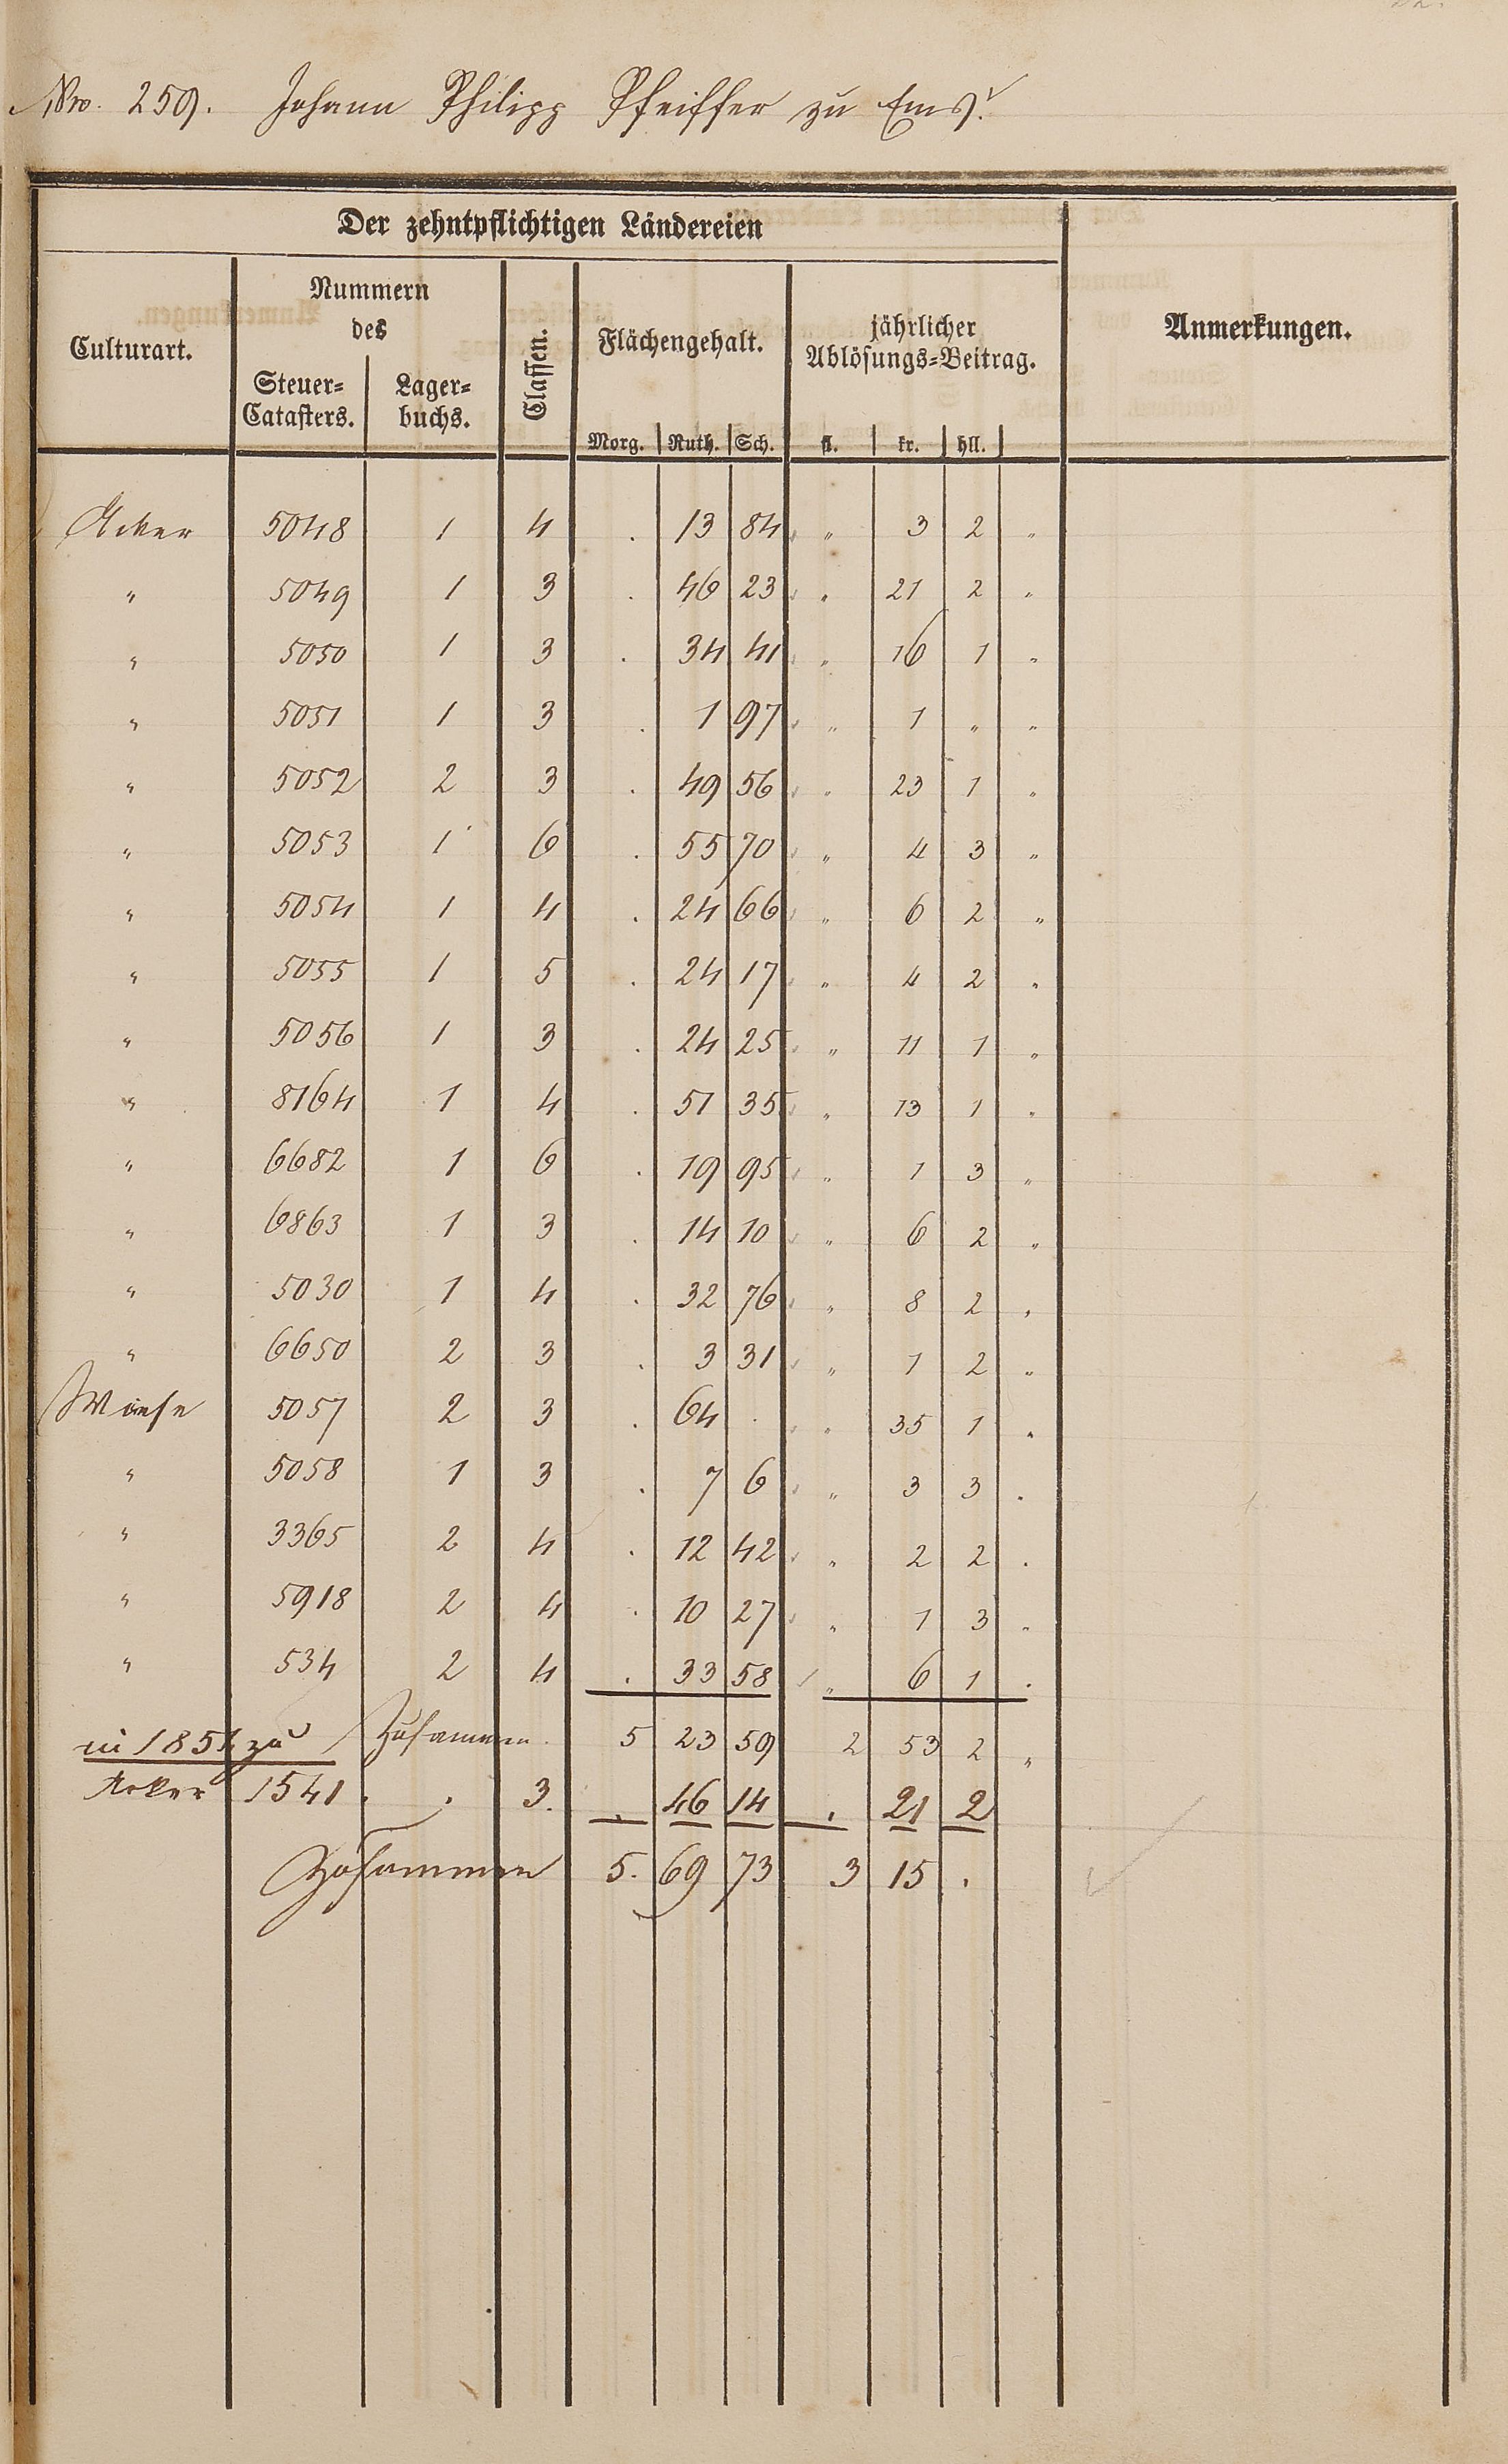 Nro. 259. Johann Philipp Pfeiffer zu Ems.
Der zehntpflichtigen Ländereien
Culturart. Nummern des Steuer-Catasters. Lagerbuchs. Classen. Flächengehalt. jährlicher Ablösungs-Beitrag. Anmerkungen.
Morg. Ruth. Sch. fl. kr. hll.
Acker 5048 1 4 . 13 84 " 3 2 "
" 5049 1 3 . 46 23 " 21 2 "
" 5050 1 3 . 34 41 " 16 1 "
" 5051 1 3 . 1 97 " 1 " "
" 5052 2 3 . 49 56 " 23 1 "
" 5053 1 6 . 55 70 " 4 3 "
" 5054 1 4 . 24 66 " 6 2 "
" 5055 1 5 . 24 17 " 4 2 "
" 5056 1 3 . 24 25 " 11 1 "
" 8164 1 4 . 51 35 " 13 1 "
" 6682 1 6 . 19 95 " 1 3 "
" 6863 1 3 . 14 10 " 6 2 "
" 5030 1 4 . 32 76 " 8 2 "
" 6650 2 3 . 3 31 " 1 2 "
Wiese 5057 2 3 . 64 . " 35 1 "
" 5058 1 3 . 7 6 " 3 3 .
" 3365 2 4 . 12 42 " 2 2 .
" 5918 2 4 . 10 27 " 1 3 "
" 534 2 4 . 33 58 " 6 1 .
Zusammen. 5 23 59 2 53 2 "
in 1854 zu
Acker 1541 . . 3. . 46 14 . 21 2
Zusammen 5. 69 73 3 15 .